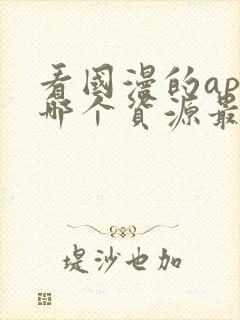 看國漫的ap
哪个资源最
堤沙也加